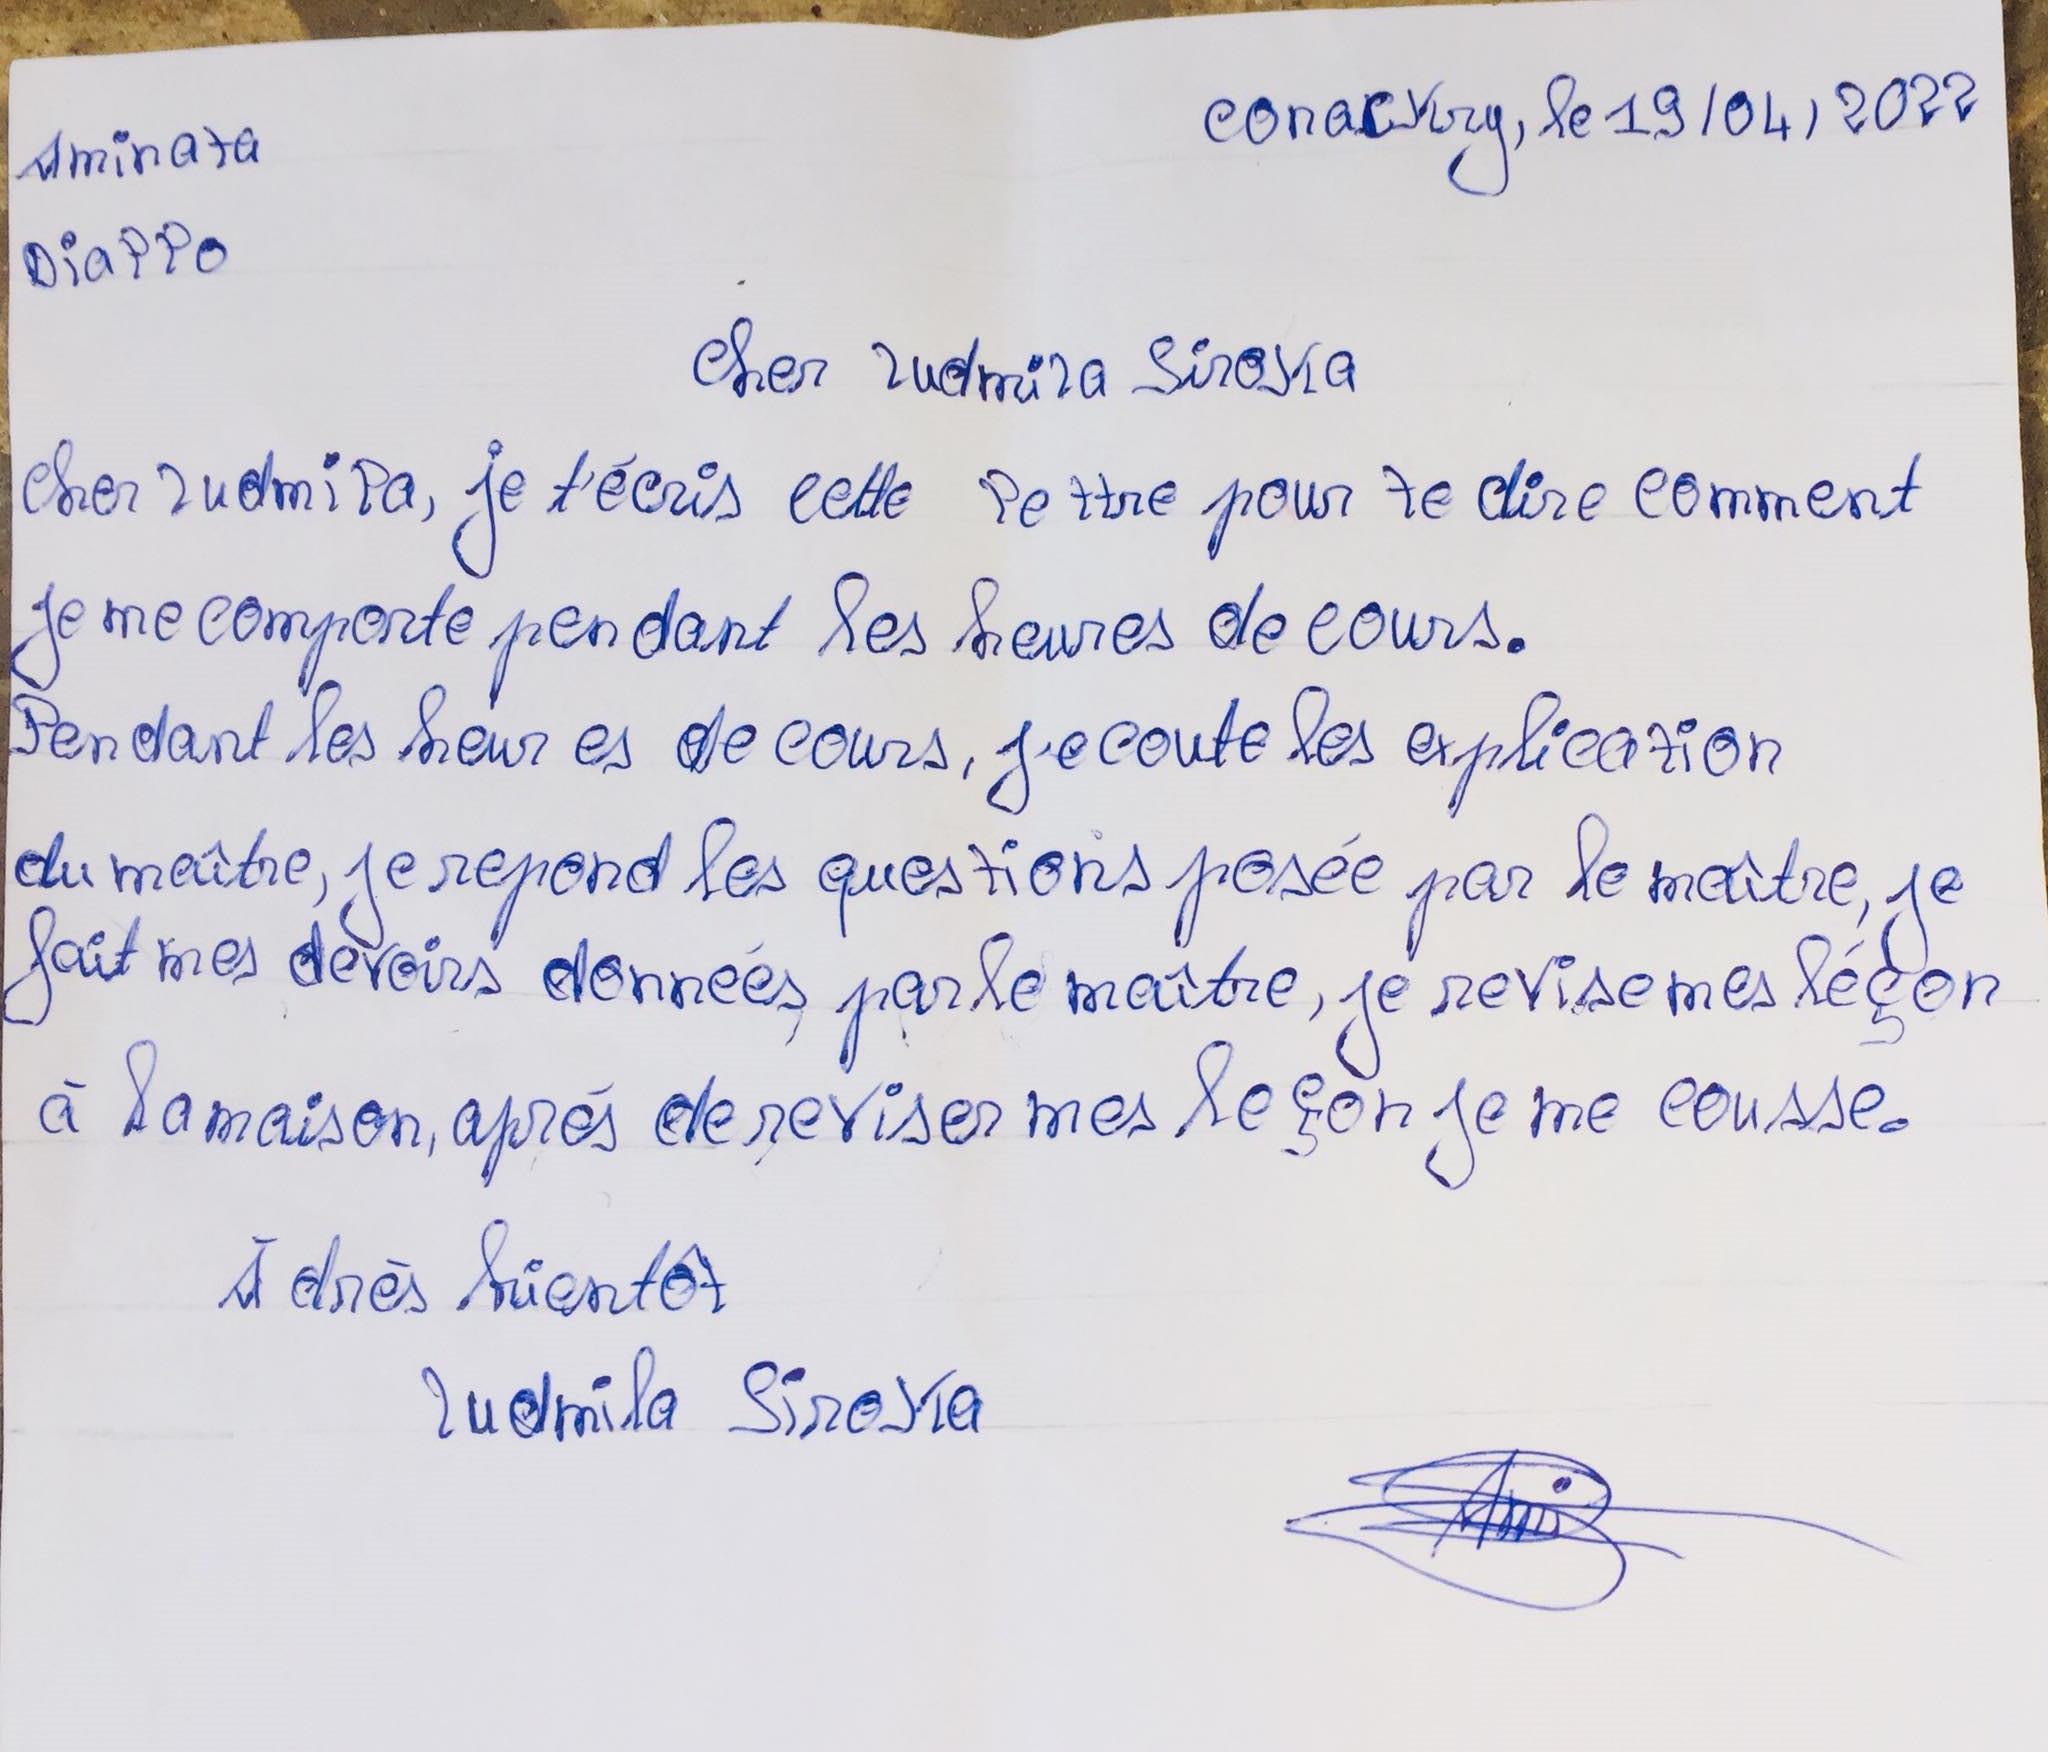 conackry, le 19/04/2022
Aminata
Diallo
Cher Ludmila Siroska
Cher Ludmila, je t'écris cette lettre pour te dire comment
je me comporte pendant les heures de cours.
Pendant les heures de cours, j'ecoute les explication
du maître, je repond les questions posée par le maître, je
fait mes devoirs données par le maître, je revise mes léçon
à la maison, après de reviser mes leçon je me cousse.
À drès bientôt
Ludmila Siroska
Ami